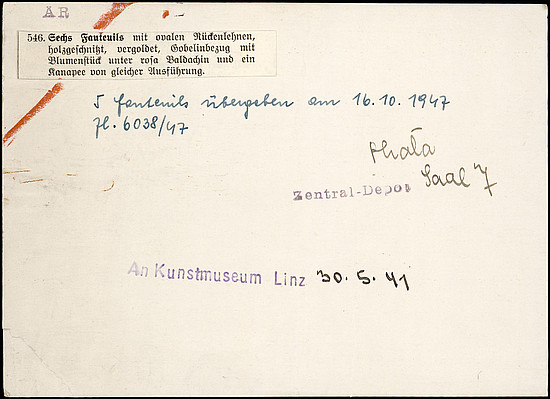 AR
546. Sechs Fauteuils mit ovalen Rückenlehnen,
holzgeschnitzt, vergoldet, Gobelinbezug mit
Blumenstück unter rosa Baldachin und ein
Kanapee von gleicher Ausführung.
5 Fauteuils übergeben am 16.10.1947
Zl. 6038/47
Saal 7
Zentral-Depot
An Kunstmuseum Linz 30.5.41